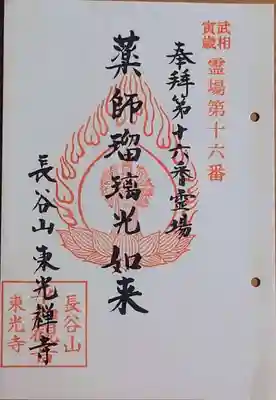 武相
寅歳
霊場第十六番
奉拝第十六番霊場
薬師瑠璃光如来
長谷山東光禅寺
長谷山
東光寺